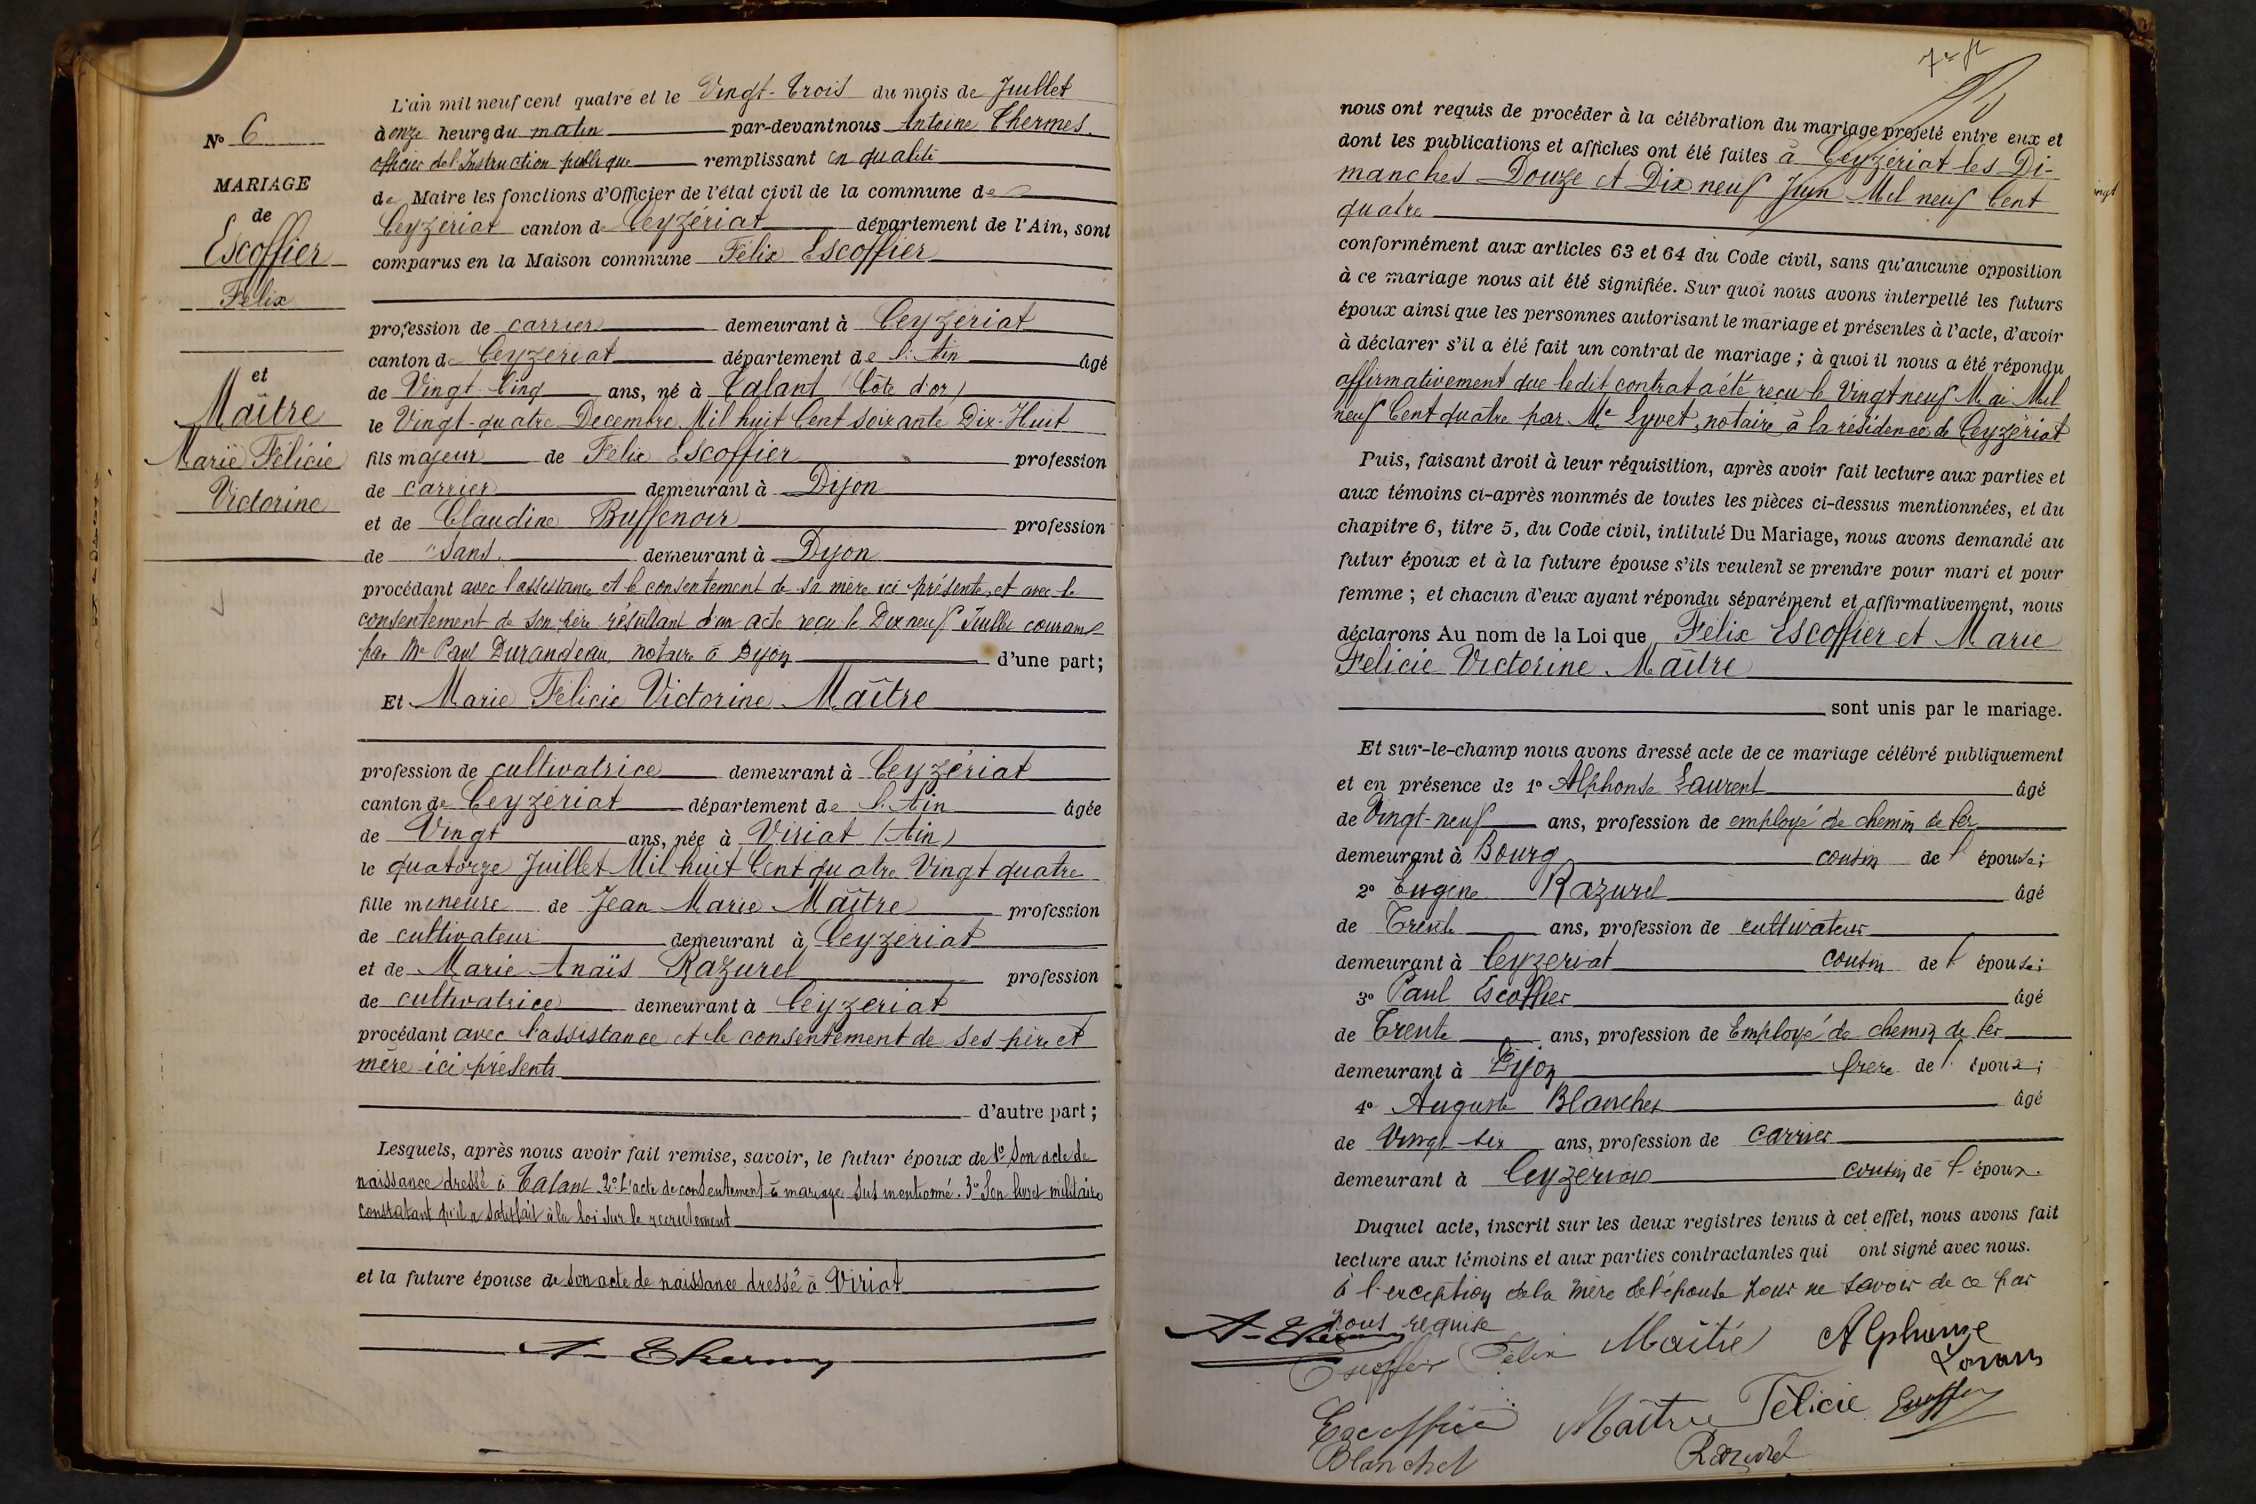 N° 6
MARIAGE
de
Escoffier
Félix
et
Maître
Marie Félicie
Victorine
L'an mil neuf cent quatre et le Vingt-trois du mois de Juillet
à onze heures du matin par-devant nous Antoine Thermes
officier de l'Instruction publique remplissant en qualité
de Maire les fonctions d'Officier de l'état civil de la commune de
Ceyzériat canton de Ceyzériat département de l'Ain, sont
comparus en la Maison commune Félix Escoffier
profession de carrier demeurant à Ceyzériat
canton de Ceyzériat département de l'Ain âgé
de Vingt-Cinq ans, né à Talant (Côte d'or)
le Vingt-quatre Décembre Mil huit Cent soixante Dix-Huit
fils majeur de Félix Escoffier profession
de carrier demeurant à Dijon
et de Claudine Buffenoir profession
de sans demeurant à Dijon
procédant avec l'assistance et le consentement de sa mère ici présente, et avec le
consentement de son père résultant d'un acte reçu le Dix neuf Juillet courant
par Me Paul Durandeau, notaire à Dijon d'une part;
Et Marie Félicie Victorine Maître
profession de cultivatrice demeurant à Ceyzériat
canton de Ceyzériat département de l'Ain âgée
de Vingt ans, née à Viriat (Ain)
le quatorze Juillet Mil huit Cent quatre Vingt quatre
fille mineure de Jean Marie Maître profession
de cultivateur demeurant à Ceyzériat
et de Marie Anaïs Razurel profession
de cultivatrice demeurant à Ceyzériat
procédant avec l'assistance et le consentement de ses père et
mère ici présents
d'autre part;
Lesquels, après nous avoir fait remise, savoir, le futur époux de 1° Son acte de
naissance dressé à Talant 2° L'acte de consentement à mariage sus mentionné. 3° Son livret militaire
constatant qu'il a satisfait à la loi sur le recrutement
et la future épouse de son acte de naissance dressé à Viriat
A. Thermes
nous ont requis de procéder à la célébration du mariage projeté entre eux et
dont les publications et affiches ont été faites à Ceyzériat les Di-
manches Douze et Dix neuf Juin Mil neuf Cent
quatre
conformément aux articles 63 et 64 du Code civil, sans qu'aucune opposition
à ce mariage nous ait été signifiée. Sur quoi nous avons interpellé les futurs
époux ainsi que les personnes autorisant le mariage et présentes à l'acte, d'avoir
à déclarer s'il a été fait un contrat de mariage; à quoi il nous a été répondu
affirmativement que ledit contrat a été reçu le Vingt neuf Mai Mil
neuf Cent quatre par Me Lyvet, notaire à la résidence de Ceyzériat
Puis, faisant droit à leur réquisition, après avoir fait lecture aux parties et
aux témoins ci-après nommés de toutes les pièces ci-dessus mentionnées, et du
chapitre 6, titre 5, du Code civil, intitulé Du Mariage, nous avons demandé au
futur époux et à la future épouse s'ils veulent se prendre pour mari et pour
femme; et chacun d'eux ayant répondu séparément et affirmativement, nous
déclarons Au nom de la Loi que Félix Escoffier et Marie
Félicie Victorine Maître
sont unis par le mariage.
Et sur-le-champ nous avons dressé acte de ce mariage célébré publiquement
et en présence de 1° Alphonse Laurent âgé
de Vingt-neuf ans, profession de employé de chemin de fer
demeurant à Bourg cousin de l'épouse;
2° Eugène Razurel âgé
de Trente ans, profession de cultivateur
demeurant à Ceyzériat cousin de l'épouse;
3° Paul Escoffier âgé
de Trente ans, profession de Employé de chemin de fer
demeurant à Dijon frère de l'époux;
4° Auguste Blanchet âgé
de Vingt-six ans, profession de carrier
demeurant à Ceyzériat cousin de l'époux.
Duquel acte, inscrit sur les deux registres tenus à cet effet, nous avons fait
lecture aux témoins et aux parties contractantes qui ont signé avec nous.
à l'exception de la mère de l'épouse pour ne savoir de ce par
nous requise
A. Thermes
Escoffier Félix Maître Alphonse
Laurent
Escoffier Maître Félicie Escoffier
Blanchet Razurel